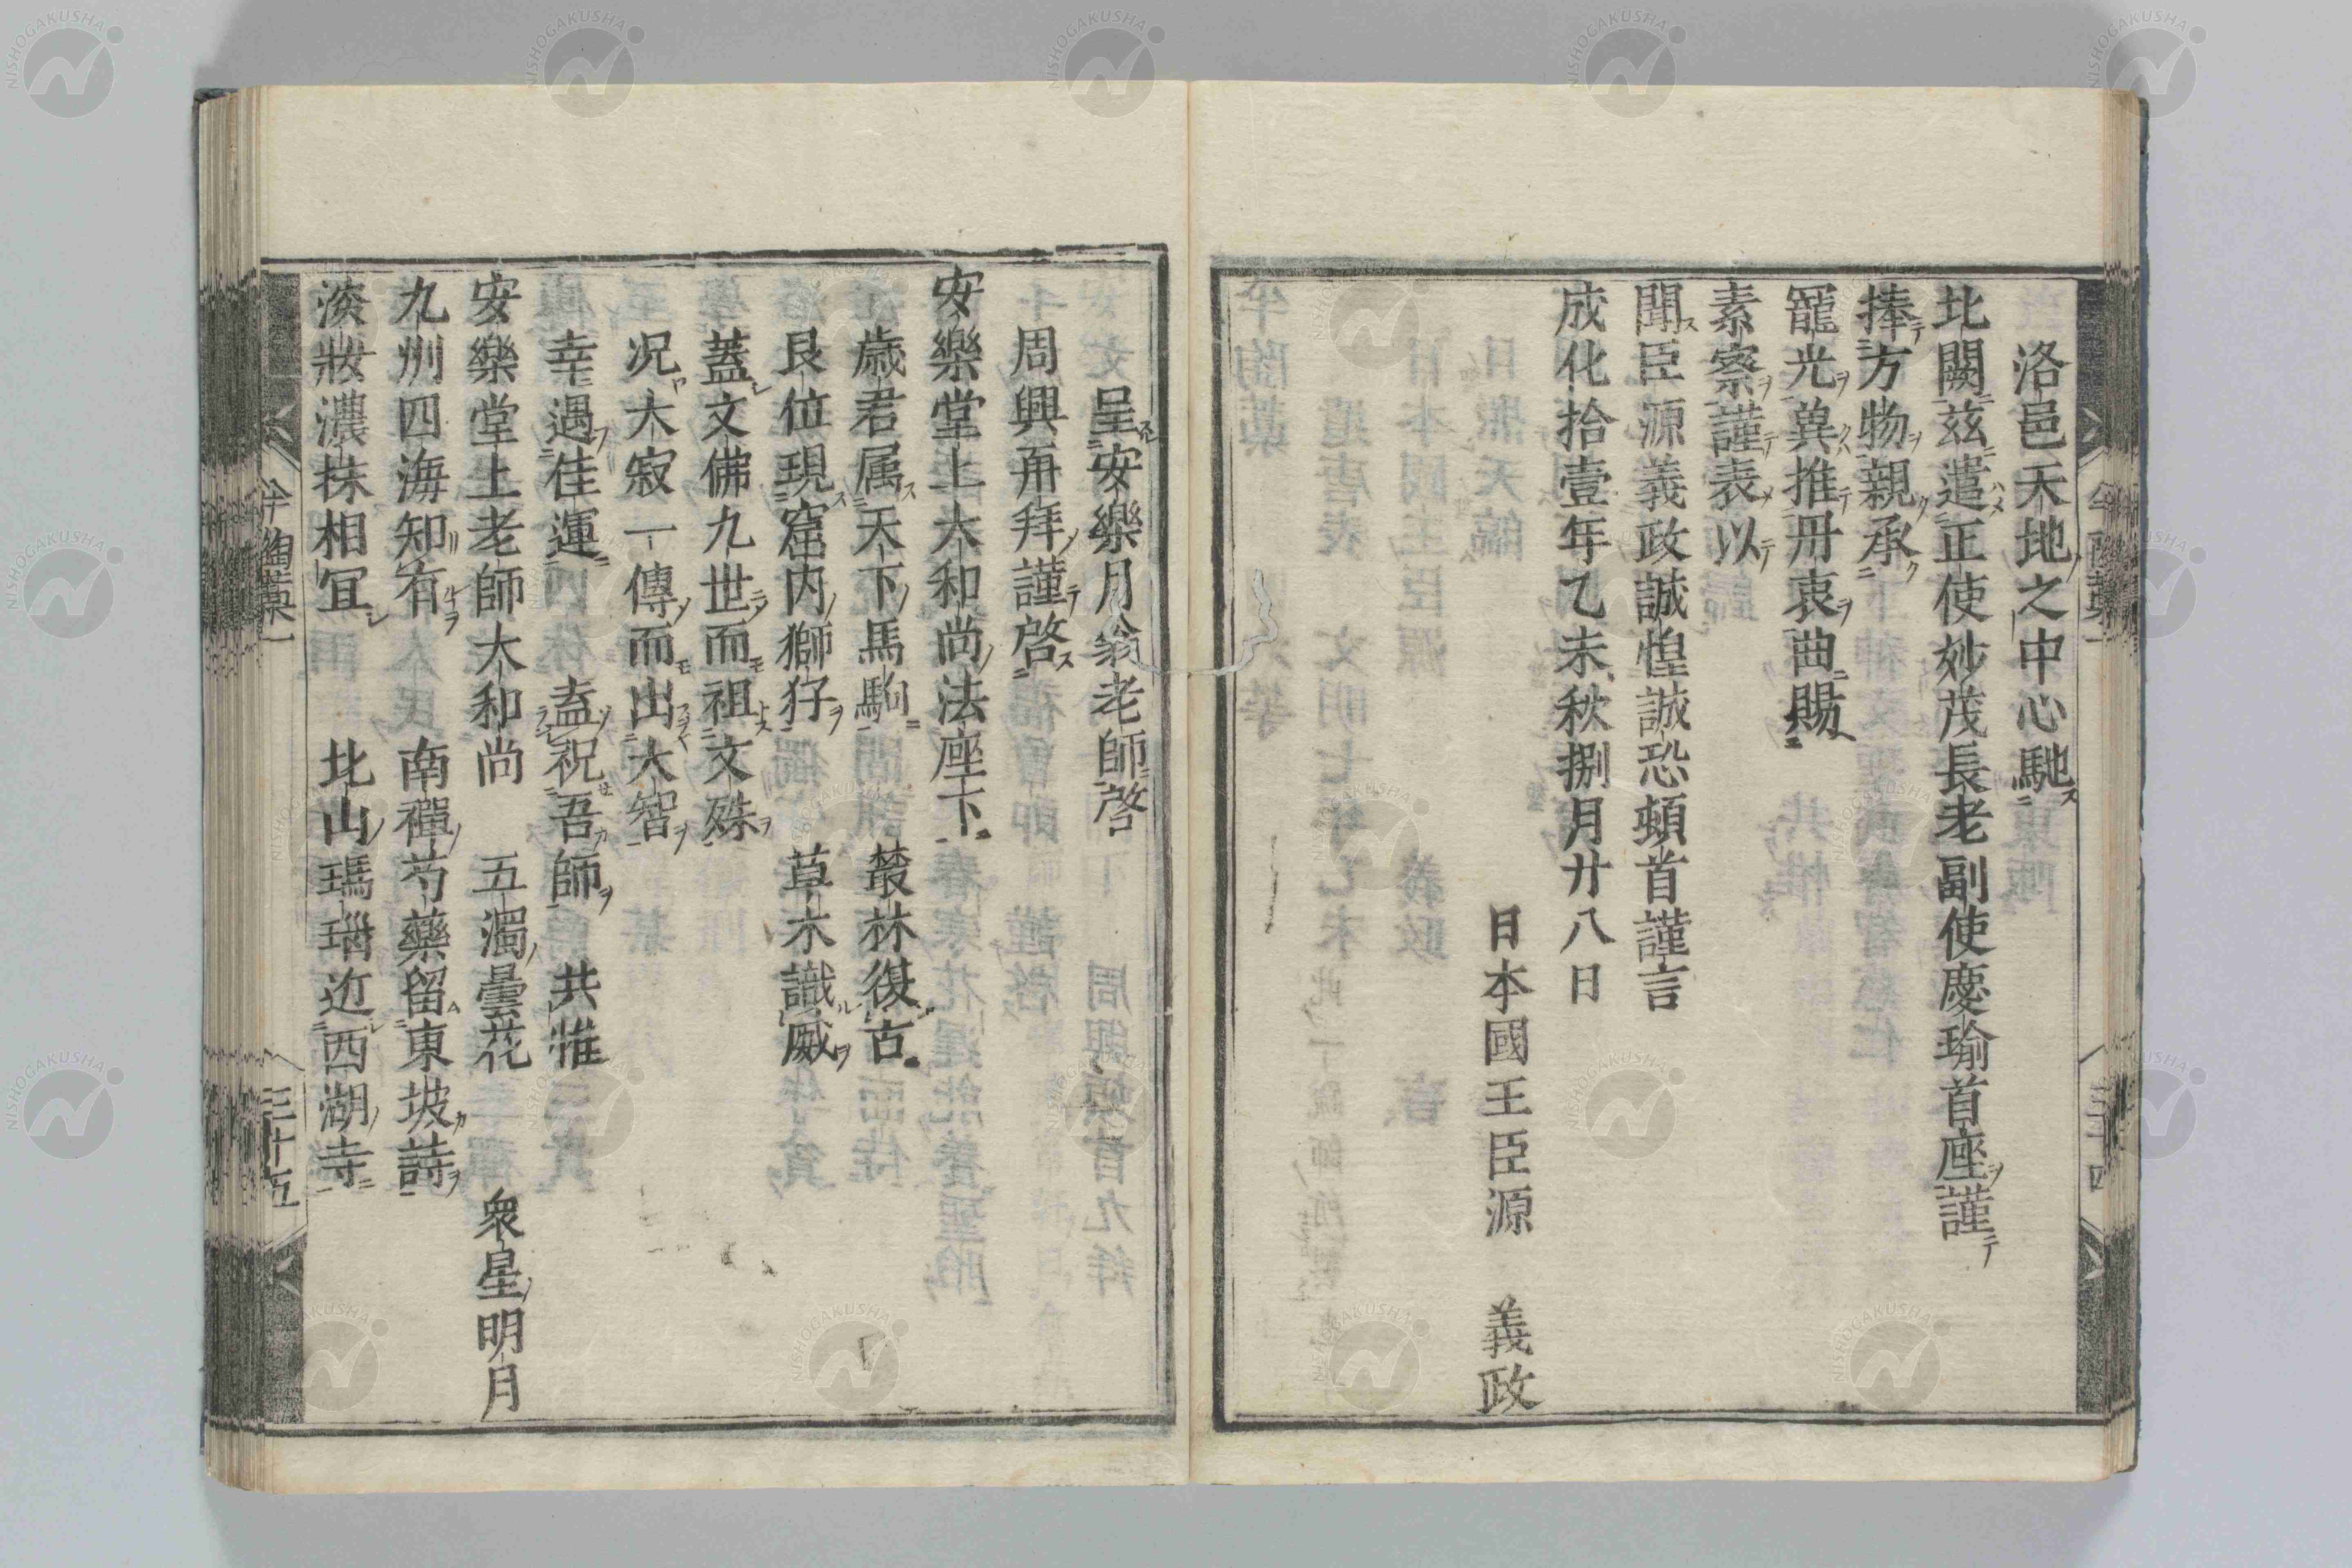 洛邑天地之中心馳
北闕茲遣正使妙茂長老副使慶瑜首座謹
捧方物親承
寵光冀推丹衷曲賜
素察謹表以
聞臣源義政誠惶誠恐頓首謹言
成化拾壹年乙未秋捌月廿八日
日本國王臣源　義政
呈安樂月翁老師啓
周興再拜謹啓
安樂堂上大和尚法座下
歳君属天下馬駒　叢林復古
艮位現窟内獅犴　草木識威
蓋文佛九世而祖文殊
况大寂一傳而出大智
幸遇佳運　盍祝吾師　共惟
安樂堂上老師大和尚　五濁曇花　衆星明月
九州四海知有　南禪芍藥留東坡詩
淡妝濃抹相宜　北山瑪瑙近西湖寺
半陶藁一　三十五
NISHOGAKUSHA